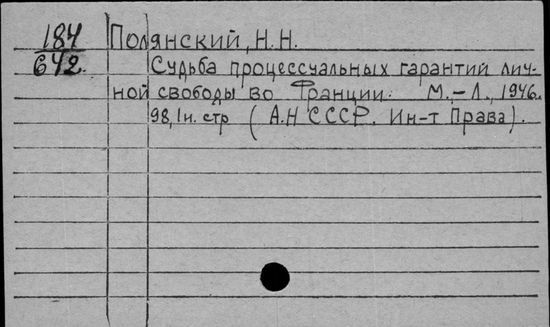 184 Полянский, Н. Н.
642. Судьба процессуальных гарантий лич-
ной свободы во Франции. М.-Л., 1946.
98, 1н. стр (А.Н СССР. Ин-т Права).